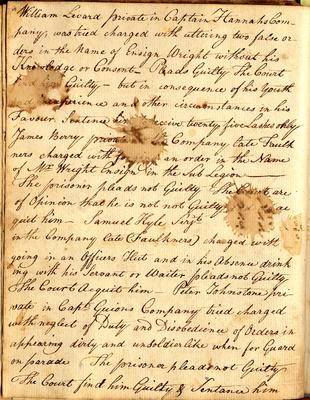 William Levard private in Captain Hannahs Com-
pany, was tried charged with uttering two false or-
ders in the Name of Ensign Wright without his
Knowledge or Consent Pleads Guilty The Court
find him Guilty – but in consequence of his Youth
and inexperience and other circumstances in his
Favour, Sentence him receive twenty five Lashes only
James Berry private Company late Faulk
ners charged with an order in the Name
of Mr Wright Ensign in the Sub Legion
The prisoner pleads not Guilty The Court are
of Opinion that he is not not Guilty ac
quit him – Samuel Hyle Serjt
in the Company late (Faulkners) charged with
going in an Officers and in his Absence drink
ing with his Servant or Waiter pleads not Guilty
The Court Acquit him – Peter Johnstone pri
vate in Capt Guions Company tried charged
with neglect of Duty and Disobedience of Orders in
appearing dirty and unsoldierlike when for Guard
on parade The prisoner pleads not Guilty
The Court find him Guilty & Sentance him